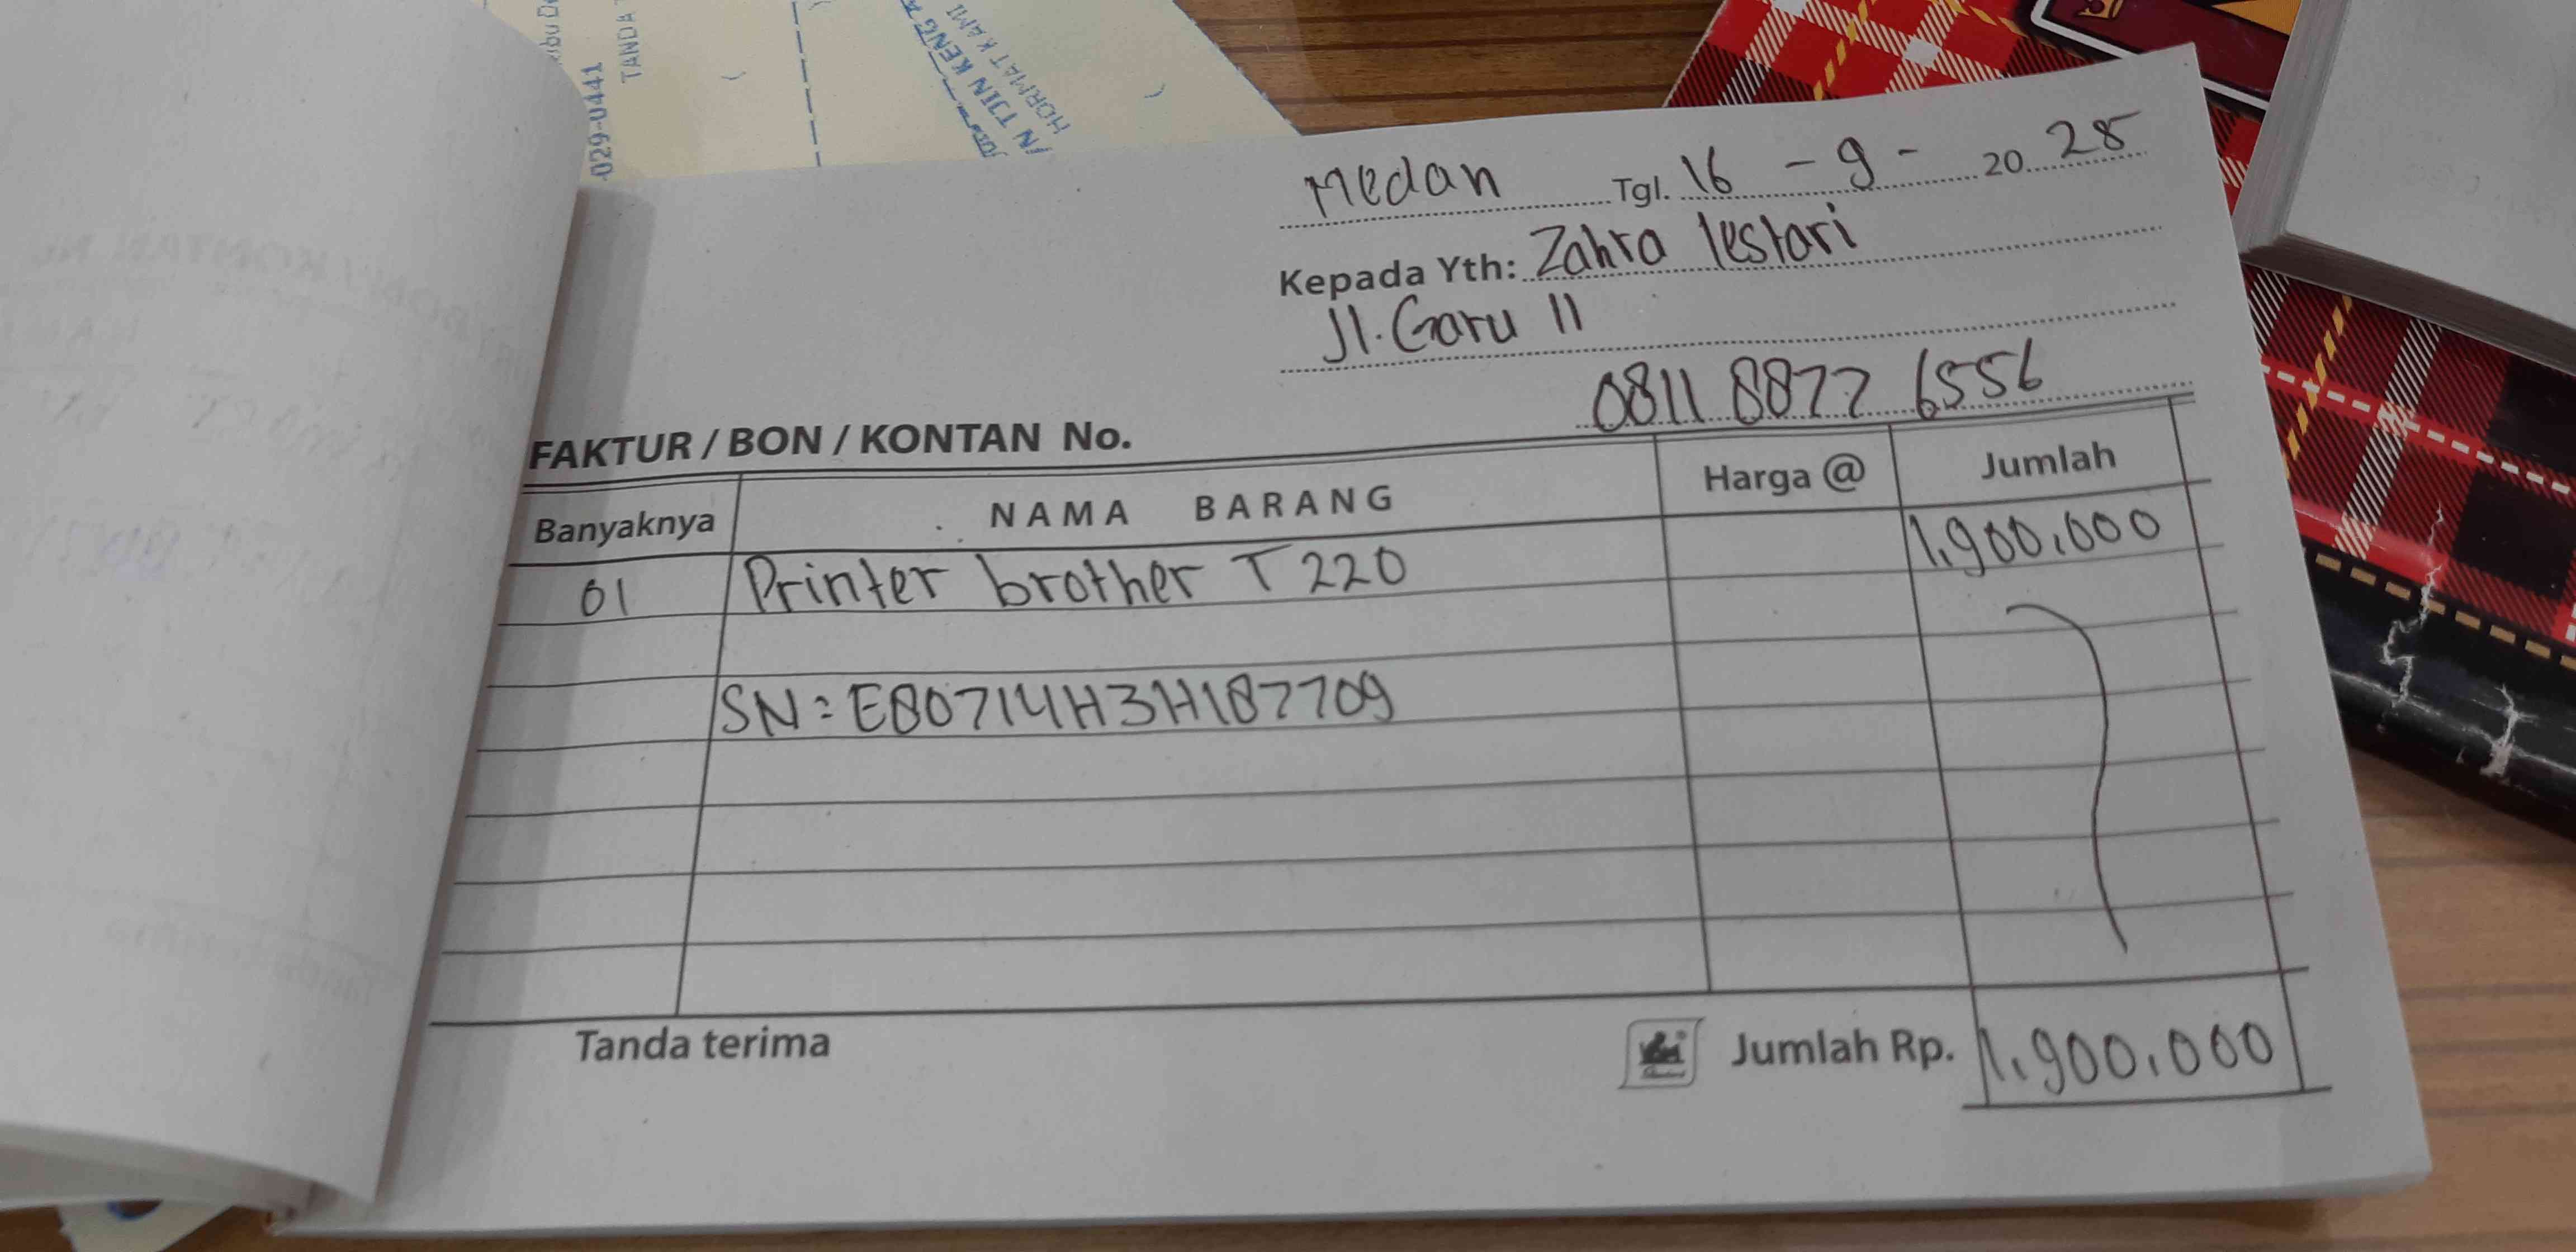 ibu De
TANDA T
029-0441
N TJIN KENG A
HORMAT KAMI
Medan Tgl. 16 - 9 - 20 25
Kepada Yth: Zahra lestari
Jl. Garu II
0811 8877 6556
FAKTUR / BON / KONTAN No.
Banyaknya NAMA BARANG Harga @ Jumlah
01 Printer brother T 220 1.900.000
SN : E80714H3H187709
Tanda terima Jumlah Rp. 1.900.000